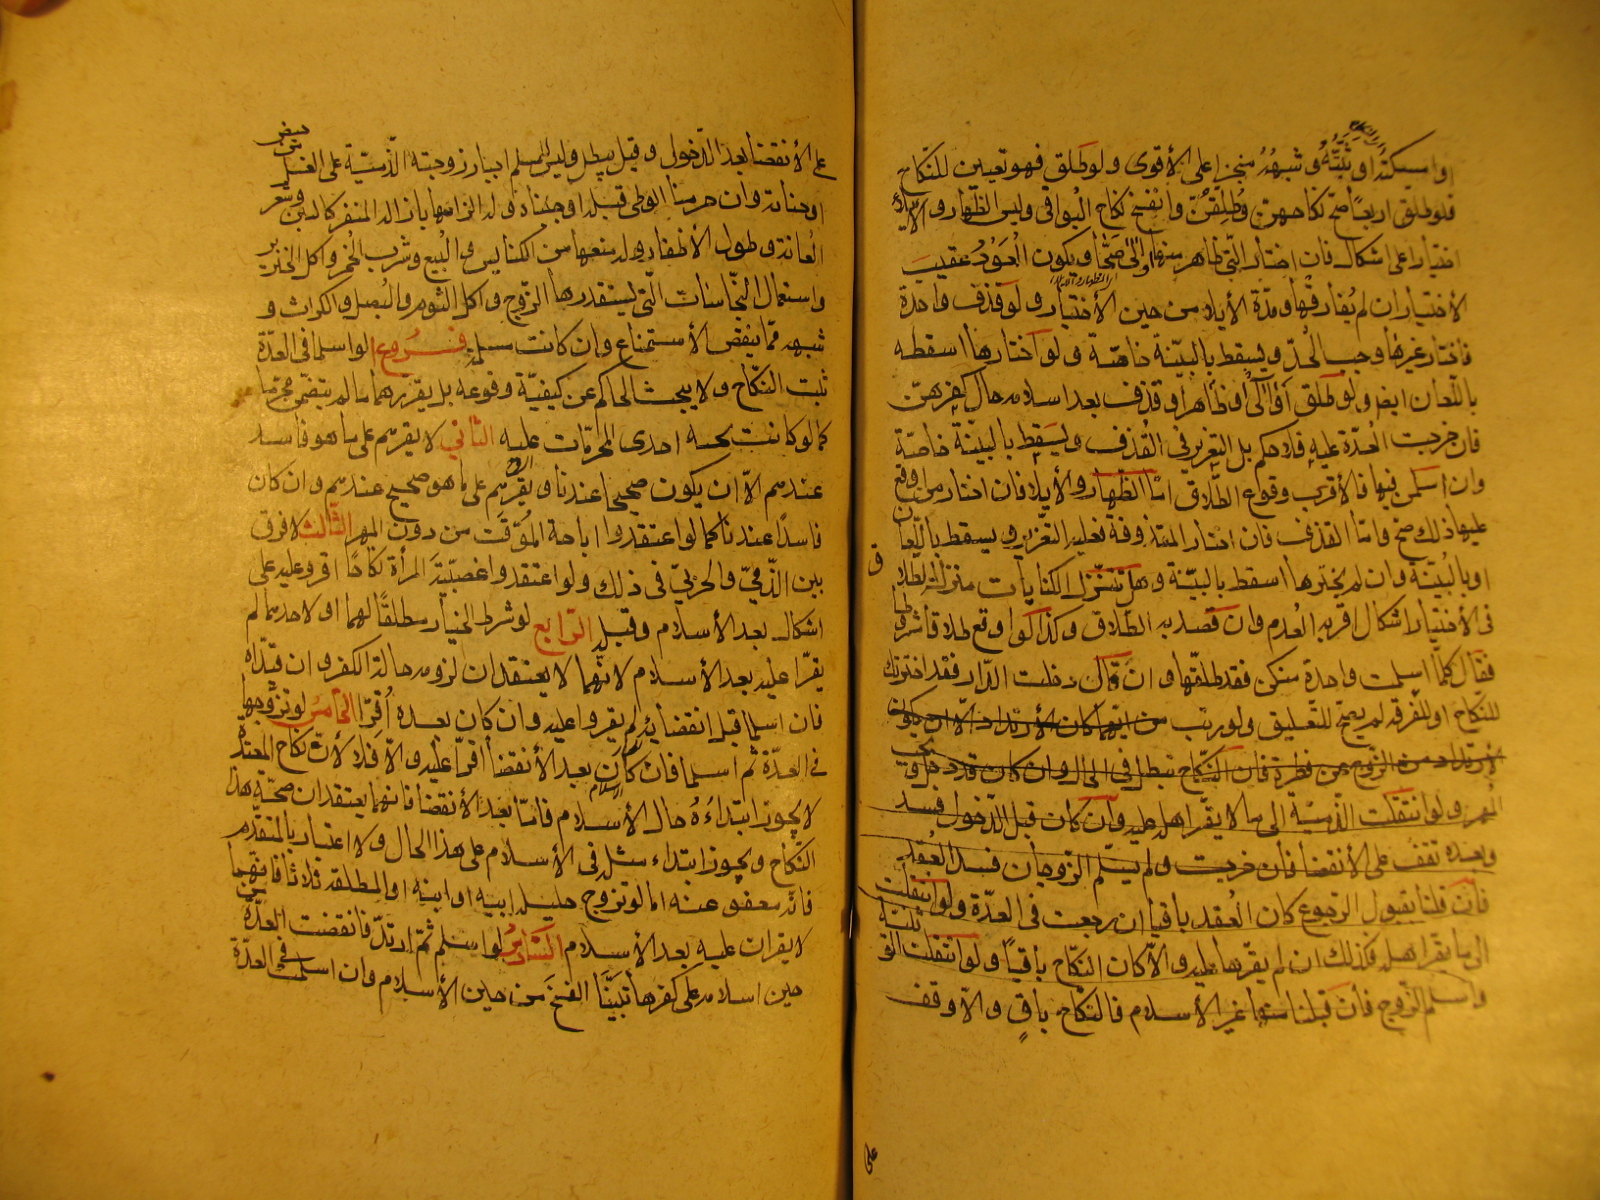 او امسكتك او ثبته و شبهه منجزا على الأقوى ولو طلق فهو تعيين للنكاح
فلو طلق اربعا صح نكاحهن وطلقن وانفسخ نكاح البواقي وليس الظهار و الايلاء
اختيارا على اشكال فان اختار التي ظاهر منها او آلى صحا ويكون العود عقيب
الأختيار ان لم يفارقها ومدة الأيلاء من حين الأختيار ولو قذف واحدة
فاختار غيرها وجب الحد ويسقط بالبينة خاصة ولو اختارها اسقطه
باللعان ايضا ولو طلق او آلى او ظاهر او قذف بعد اسلامه حال كفرهن
فان خرجت العدة عليه فلا حكم بل التعزير في القذف ويسقط بالبينة خاصة
وان اسلمن فيها فالأقرب وقوع الطلاق اما الظهار والأيلا فان اختار من اوقع
عليها ذلك صح واما القذف فان اختار المقذوفة فعليه التعزير و يسقط باللعان
او بالبينة وان لم يخترها اسقط بالبينة وهل تتنزل الكنايات منزلة الطلاق
في الأختيار اشكال اقربه العدم وان قصد به الطلاق وكذا لو اوقع طلاقا شرطا
فقال كلما اسلمت واحدة منكن فقد طلقتها و ان قال ان دخلت الدار فقد اخترتك
للنكاح او للفرقة لم يصح للتعليق ولو رتب من ايتهما كان الأرتداد الا ان يكون
الأرتداد من الزوج عن فطرة فان النكاح تبطل في الحال وان كان قد دخل وجب
المهر ولو انتقلت الذمية الى ما لا يقر اهله عليه وان كان قبل الدخول فسد
وبعده تقف على الأنقضا فان خرجت ولم يسلم الزوجان فسد العقد
فان قلنا بقبول الرجوع كان العقد باقيا ان رجعت في العدة ولو انتقلت
الى ما يقر اهله فكذلك ان لم يقرها عليه والا كان النكاح باقيا ولو انتقلت الوثنية
واسلم الزوج فان قبلنا منها غير الأسلام فالنكاح باق والا وقف
على
على الأنقضا بعد الدخول وقيل يبطل وليس للمسلم اجبار زوجته الذمية على الغسل من حيض
او جنابة وان حرمنا الوطي قبله او جبناه وله الزامها بازالة المنفر كالنتن وشعر
العانة وطول الأظفار وله منعها من الكنايس و البيع وشرب الخمر واكل الخنزير
واستعمال النجاسات التي يستقذرها الزوج واكل الثوم والبصل والكراث و
شبهه مما ينقض الأستمتاع وان كانت مسلمة فروع لو اسلما في العدة
ثبت النكاح ولا يبحث الحاكم عن كيفية وقوعه بل يقررهما ما لم يتضمن محرما
كما لو كانت تحته احدى المحرمات عليه الثاني لا يقرهم على ما هو فاسد
عندهم الا ان يكون صحيحا عندنا و يقرهم على ما هو صحيح عندهم وان كان
فاسدا عندنا كما لو اعتقدوا اباحة المؤقت من دون المهر الثالث لا فرق
بين الذمي والحربي في ذلك ولو اعتقدوا غصبية المرأة نكاحا اقروا عليه على
اشكال بعد الأسلام وقبله الرابع لو شرط الخيار مطلقا لهما او لاحدهما لم
يقرا عليه بعد الأسلام لانهما لا يعتقدان لزومه حالة الكفر وان قيداه
فان اسلما قبل انقضائه لم يقروا عليه وان كان بعده اقرا الخامس لو تزوجها
في العدة ثم اسلما فان كان الاسلام بعد الأنقضا أقرا عليه والا فلا لأن نكاح المعتدة
لا يجوز ابتداءه حال الأسلام فاما بعد الأنقضا فانهما يعتقدان صحة هذا
النكاح ويجوز ابتداء مثله في الأسلام على هذا الحال ولا اعتبار بالمتقدم
فانه معفو عنه اما لو تزوج حليلة ابيه او ابنه او المطلقة ثلاثا فانهما
لا يقران عليه بعد الأسلام السادس لو اسلم ثم ارتد فانقضت العدة من
حين اسلامه على كفرها تبينا الفسخ من حين الأسلام وان اسلمت في العدة